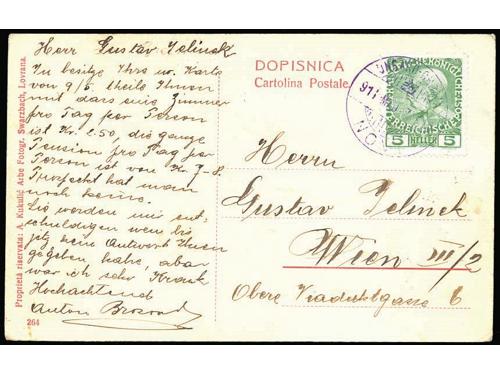 Herr Gustav Jelinek
In besitze Ihre w. Karte
von 9/5. theile Ihnen
mit dass eine Zimmer
pro Tag per Person
ist Kr. 2.50, die ganze
Pension pro Tag per
Person ist von Kr. 7-8.
Prospekt hat man
noch keine.
Sie werden mir ent-
schuldigen wen bis
jetz keine Antwort Ihnen
gegeben habe, aber
war ich sehr Krank
Hochachtend
Anton
264
Proprietà riservata: A. Kukulić Arbe Fotogr. Swarzbach, Lovrana.
DOPISNICA
Cartolina Postale.
5 HELLER 5
Herrn
Gustav Jelinek
Wien III/2
Obere Viaduktgasse 6